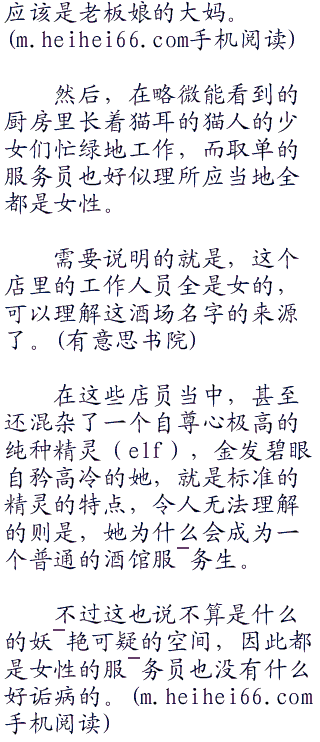 应该是老板娘的大妈。
(m.heihei66.com手机阅读)
然后，在略微能看到的
厨房里长着猫耳的猫人的少
女们忙绿地工作，而取单的
服务员也好似理所应当地全
都是女性。
需要说明的就是，这个
店里的工作人员全是女的，
可以理解这酒场名字的来源
了。(有意思书院)
在这些店员当中，甚至
还混杂了一个自尊心极高的
纯种精灵（elf），金发碧眼
自矜高冷的她，就是标准的
精灵的特点，令人无法理解
的则是，她为什么会成为一
个普通的酒馆服¯务生。
不过这也说不算是什么
的妖¯艳可疑的空间，因此都
是女性的服¯务员也没有什么
好诟病的。(m.heihei66.com
手机阅读)